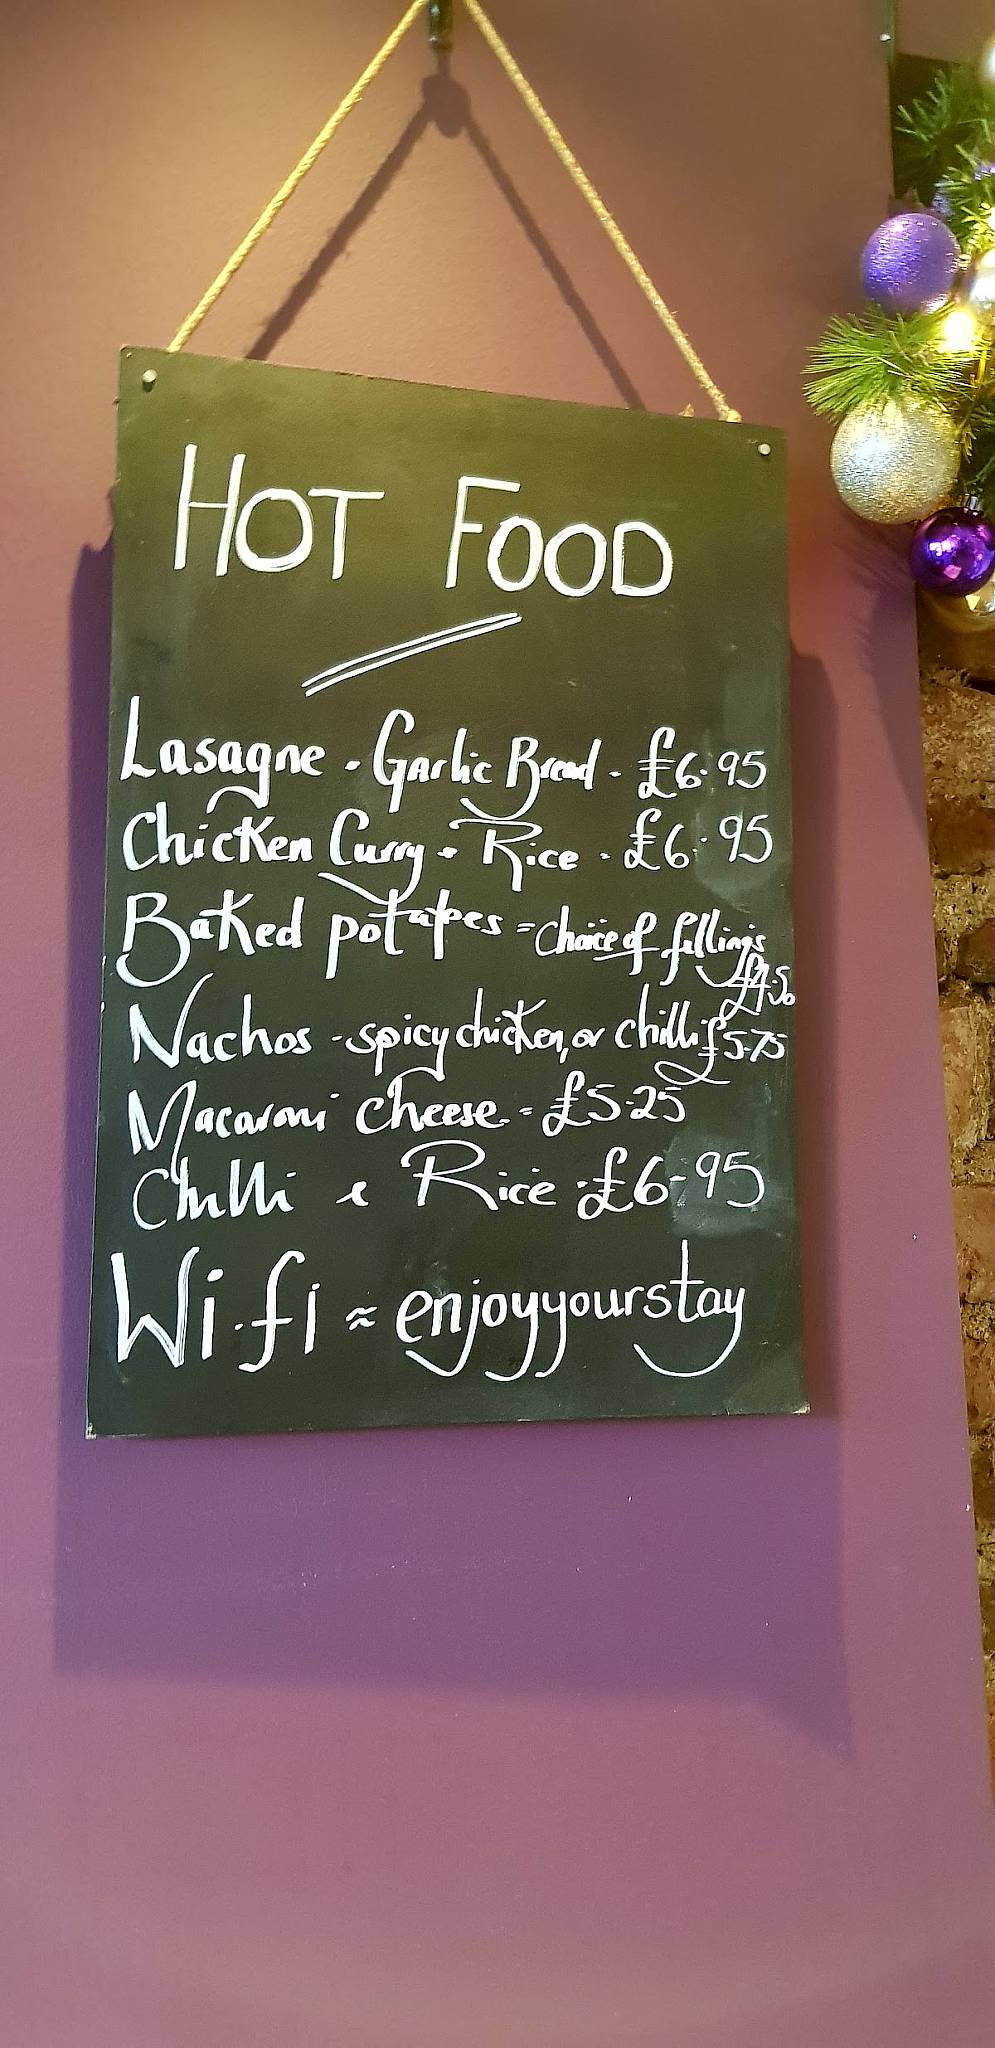 HOT FOOD
Lasagne - Garlic Bread - £6.95
Chicken Curry - Rice - £6.95
Baked potatoes = choice of fillings
£4.50
Nachos - spicy chicken, or chilli £5.75
Macaroni cheese - £5.25
Chilli & Rice - £6-95
Wi-fi ≈ enjoyyourstay